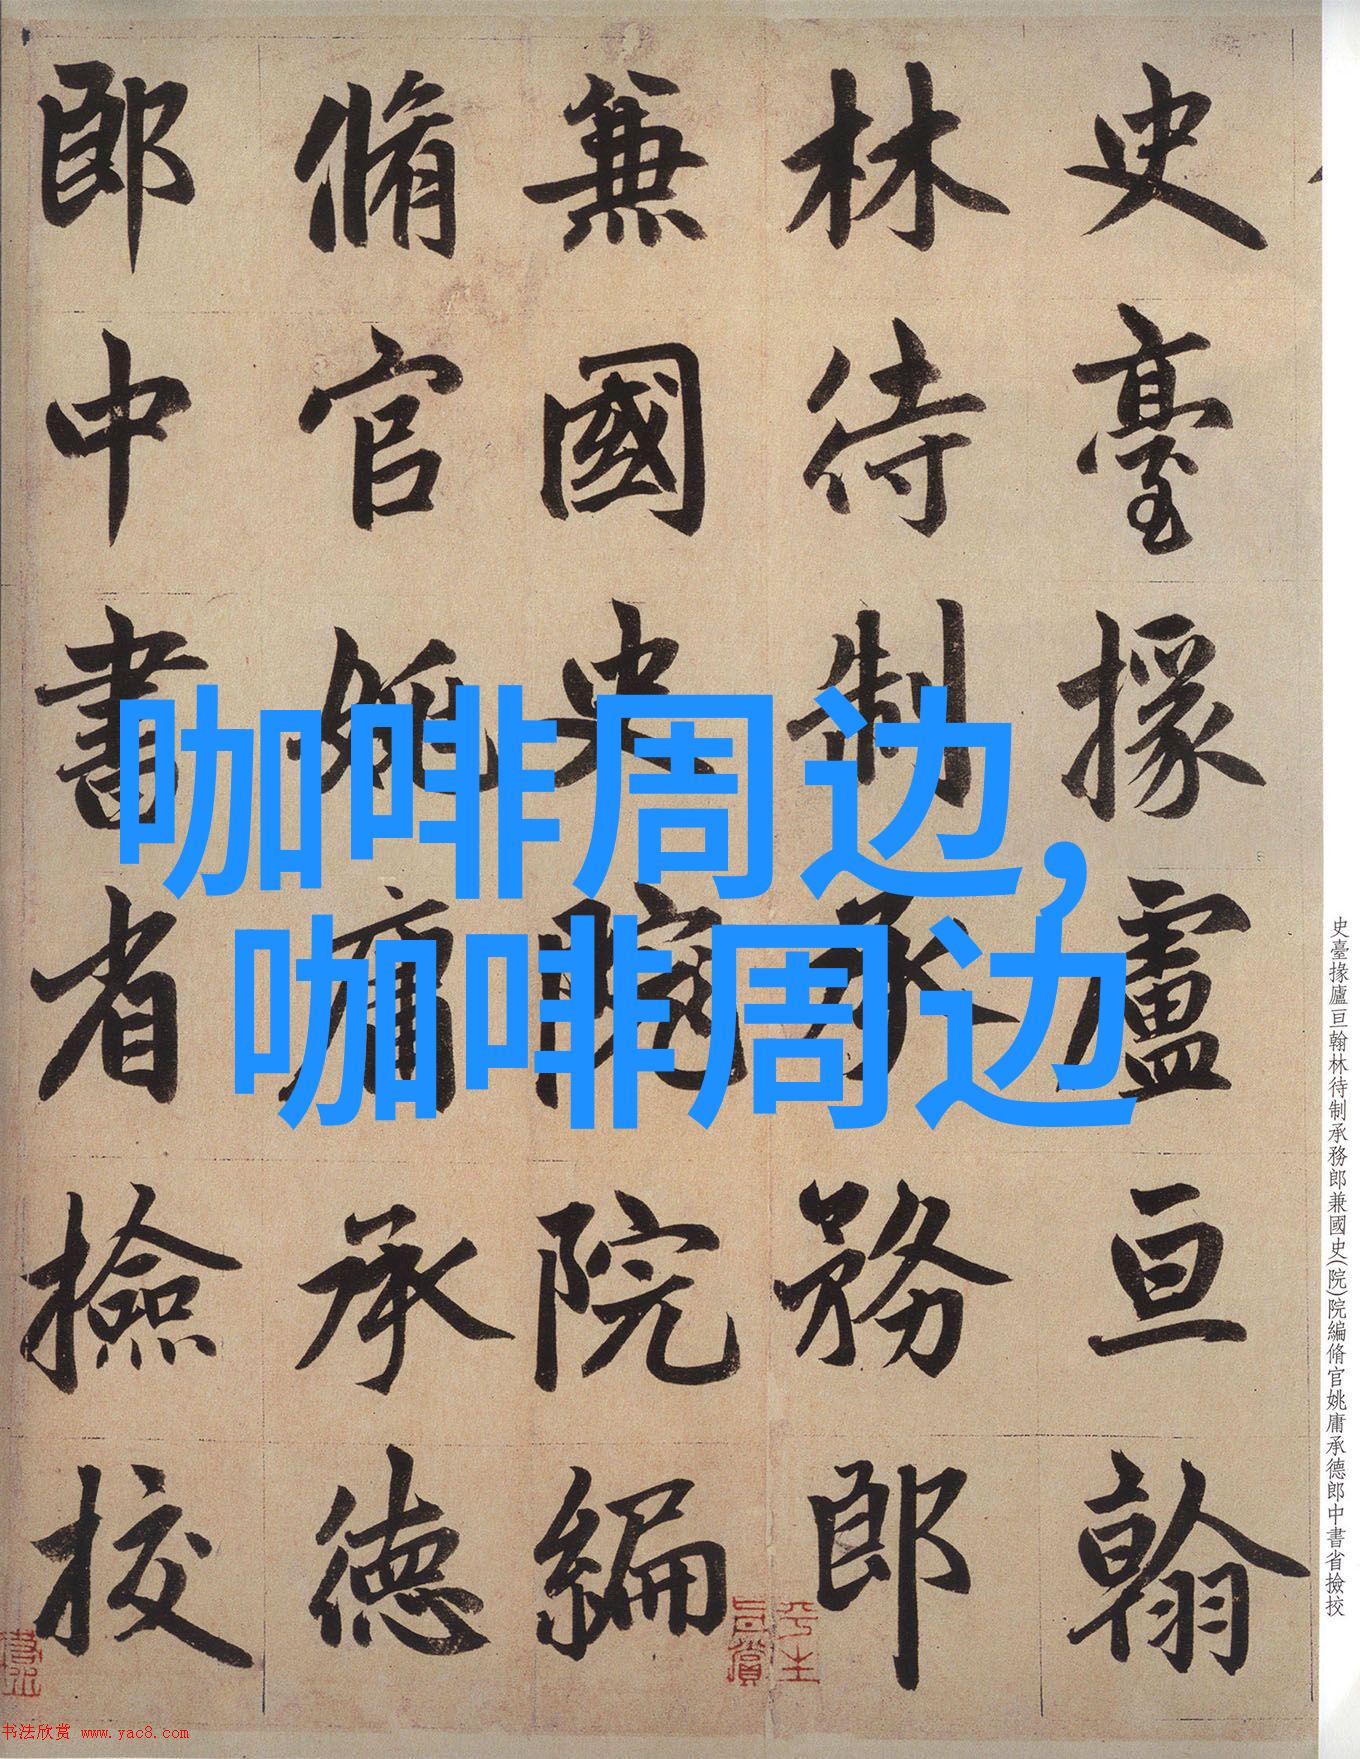 史臺掾廬亘翰
林待制承務郎
兼國史院院編
脩官姚庸承德
郎中書省撿挍
咖啡周边，
咖啡周边
史臺掾廬亘翰林待制承務郎兼國史(院)院編脩官姚庸承德郎中書省撿挍
平生
书法欣赏 www.yac8.com